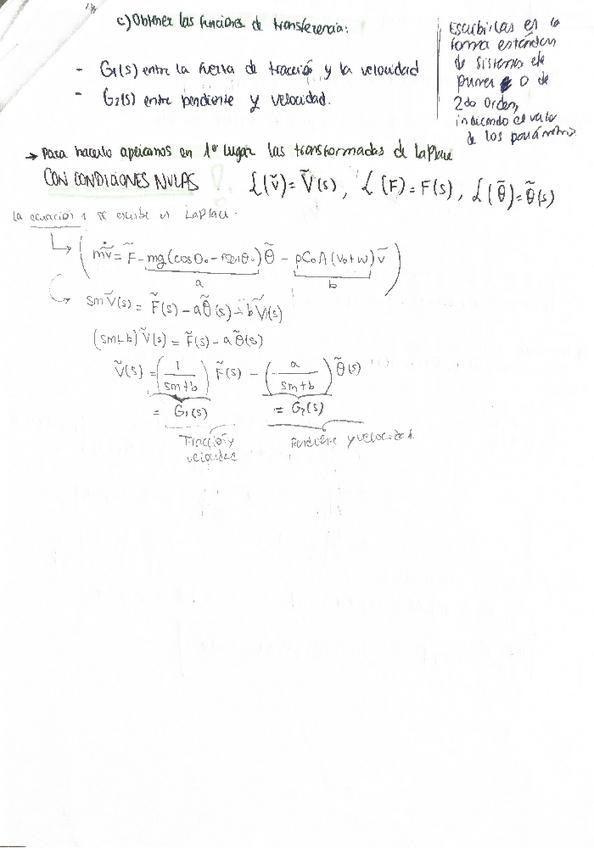 c) Obtener las funciones de transferencia:
- G₁(s) entre la fuerza de tracción y la velocidad
- G₂(s) entre pendiente y velocidad.
Escribirlas en la
forma estándar
de sistemas de
primer o de
2do orden,
indicando el valor
de los parámetros
→ Para hacerlo aplicamos en 1er lugar las transformadas de LaPlace
CON CONDICIONES NULAS ! ℒ(ṽ) = Ṽ(s), ℒ(F) = F(s), ℒ(θ̃) = θ̃(s)
La ecuación 1 se escribe en LaPlace.
(mṽ̇ = F̃ - mg(cosθ₀ - θ₀)θ̃ - ρC₀A(V₀+w)ṽ)
a b
smṼ(s) = F̃(s) - aθ̃(s) - bṼ(s)
(sm+b)Ṽ(s) = F̃(s) - aθ̃(s)
Ṽ(s) = (1/(sm+b)) F̃(s) - (a/(sm+b)) θ̃(s)
= G₁(s) = G₂(s)
Tracción y Pendiente y velocidad.
velocidad